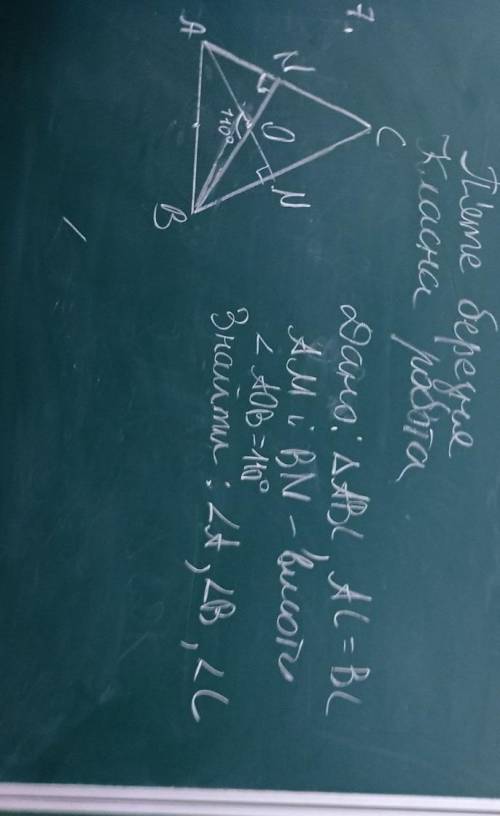 П'яте березня
Класна робота
7.
A
N
C
O
110°
N
B
Дано: ΔABC, AC = BC
AM і BN – висоти
∠AOB = 110°
Знайти: ∠A, ∠B, ∠C